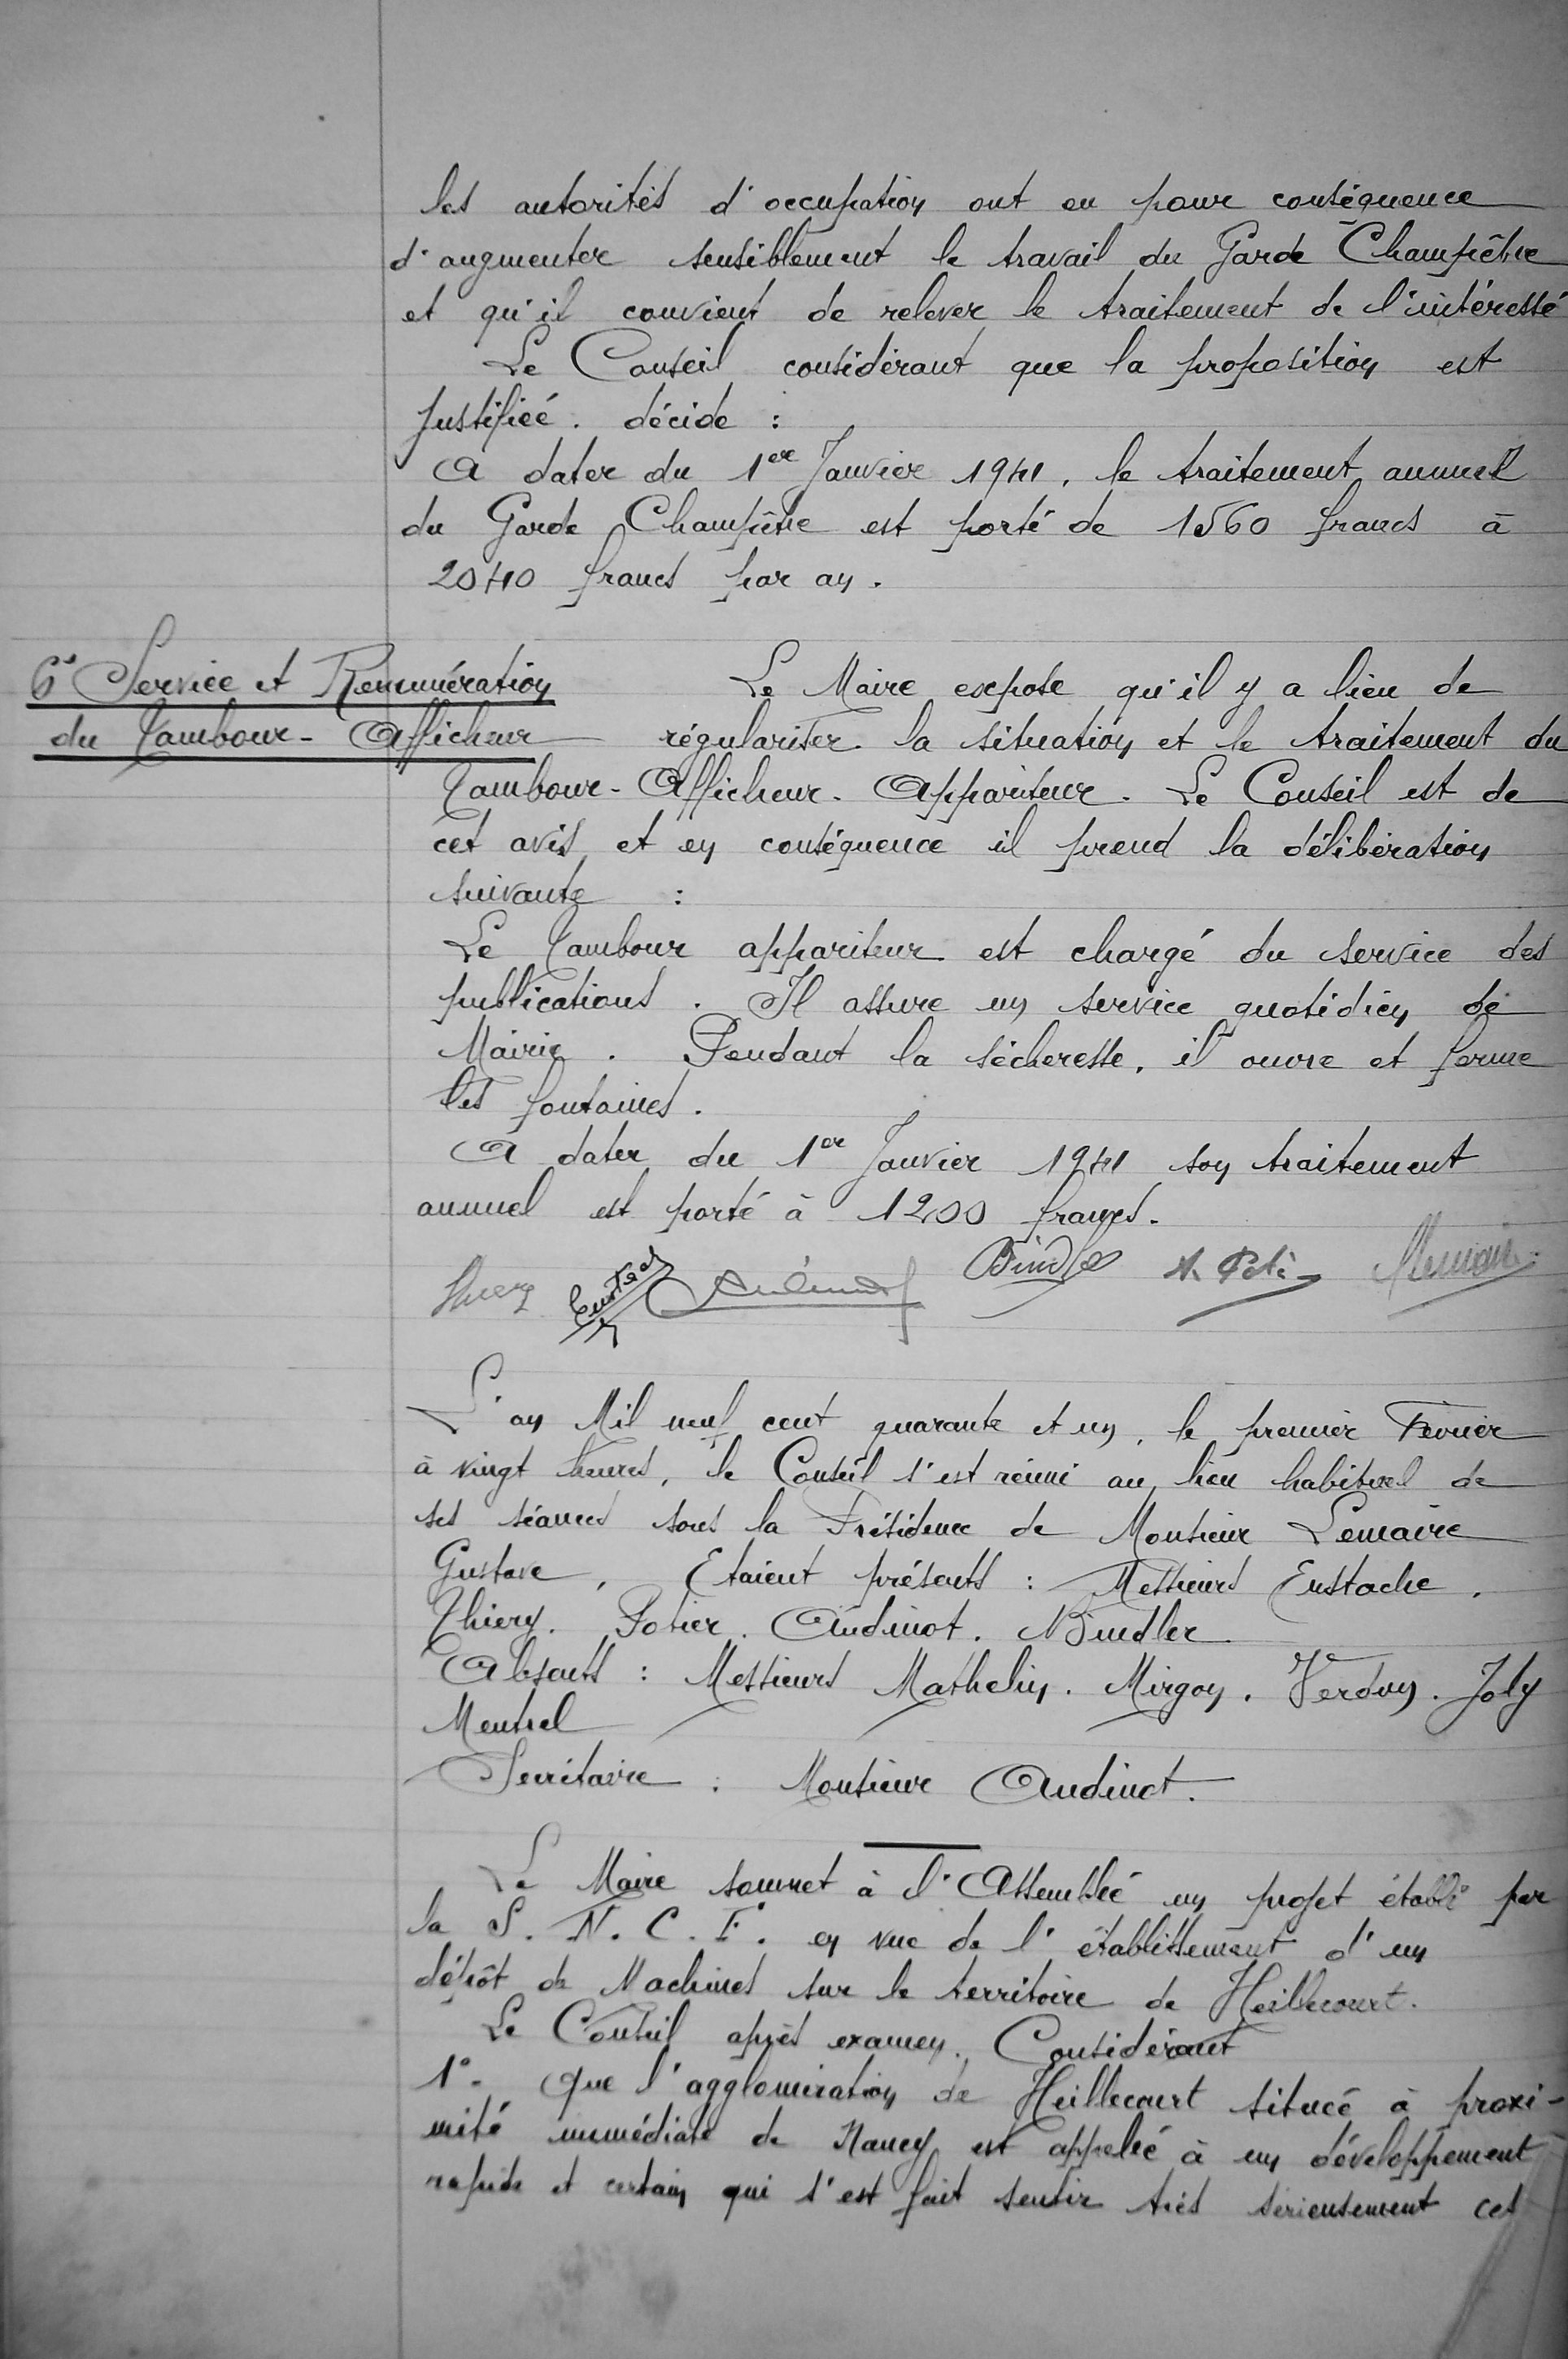 les autorités d'occupation ont eu pour conséquence
d'augmenter sensiblement le travail du Garde Champêtre
et qu'il convient de relever le traitement de l'intéressé
Le Conseil considérant que la proposition est
justifiée. décide :
A dater du 1er Janvier 1941, le traitement annuel
du Garde Champêtre est porté de 1560 francs à
2040 francs par an.
6° Service et Rémunération
du Tambour-Afficheur
Le Maire expose qu'il y a lieu de
régulariser la situation et le traitement du
Tambour-Afficheur-Appariteur. Le Conseil est de
cet avis et en conséquence il prend la délibération
suivante :
Le Tambour appariteur est chargé du service des
publications. Il assure un service quotidien de
Mairie. Pendant la sécheresse, il ouvre et ferme
les fontaines.
A dater du 1er Janvier 1941 son traitement
annuel est porté à 1200 francs.
L'an Mil neuf cent quarante et un, le premier Février
à vingt heures, le Conseil s'est réuni au lieu habituel de
ses séances sous la Présidence de Monsieur Lemaire
Gustave, Etaient présents : Messieurs Eustache,
Thiery. Potier. Audinot. Bindler
Absents : Messieurs Mathelin. Mirgon. Verdun. Joly
Mentrel
Secrétaire : Monsieur Audinot.
Le Maire soumet à l'Assemblée un projet établi par
la S.N.C.F. en vue de l'établissement d'un
dépôt de Machines sur le territoire de Heillecourt.
Le Conseil après examen. Considérant
1°- Que l'agglomération de Heillecourt située à proxi-
mité immédiate de Nancy est appelée à un développement
rapide et certain qui s'est fait sentir très sérieusement ces